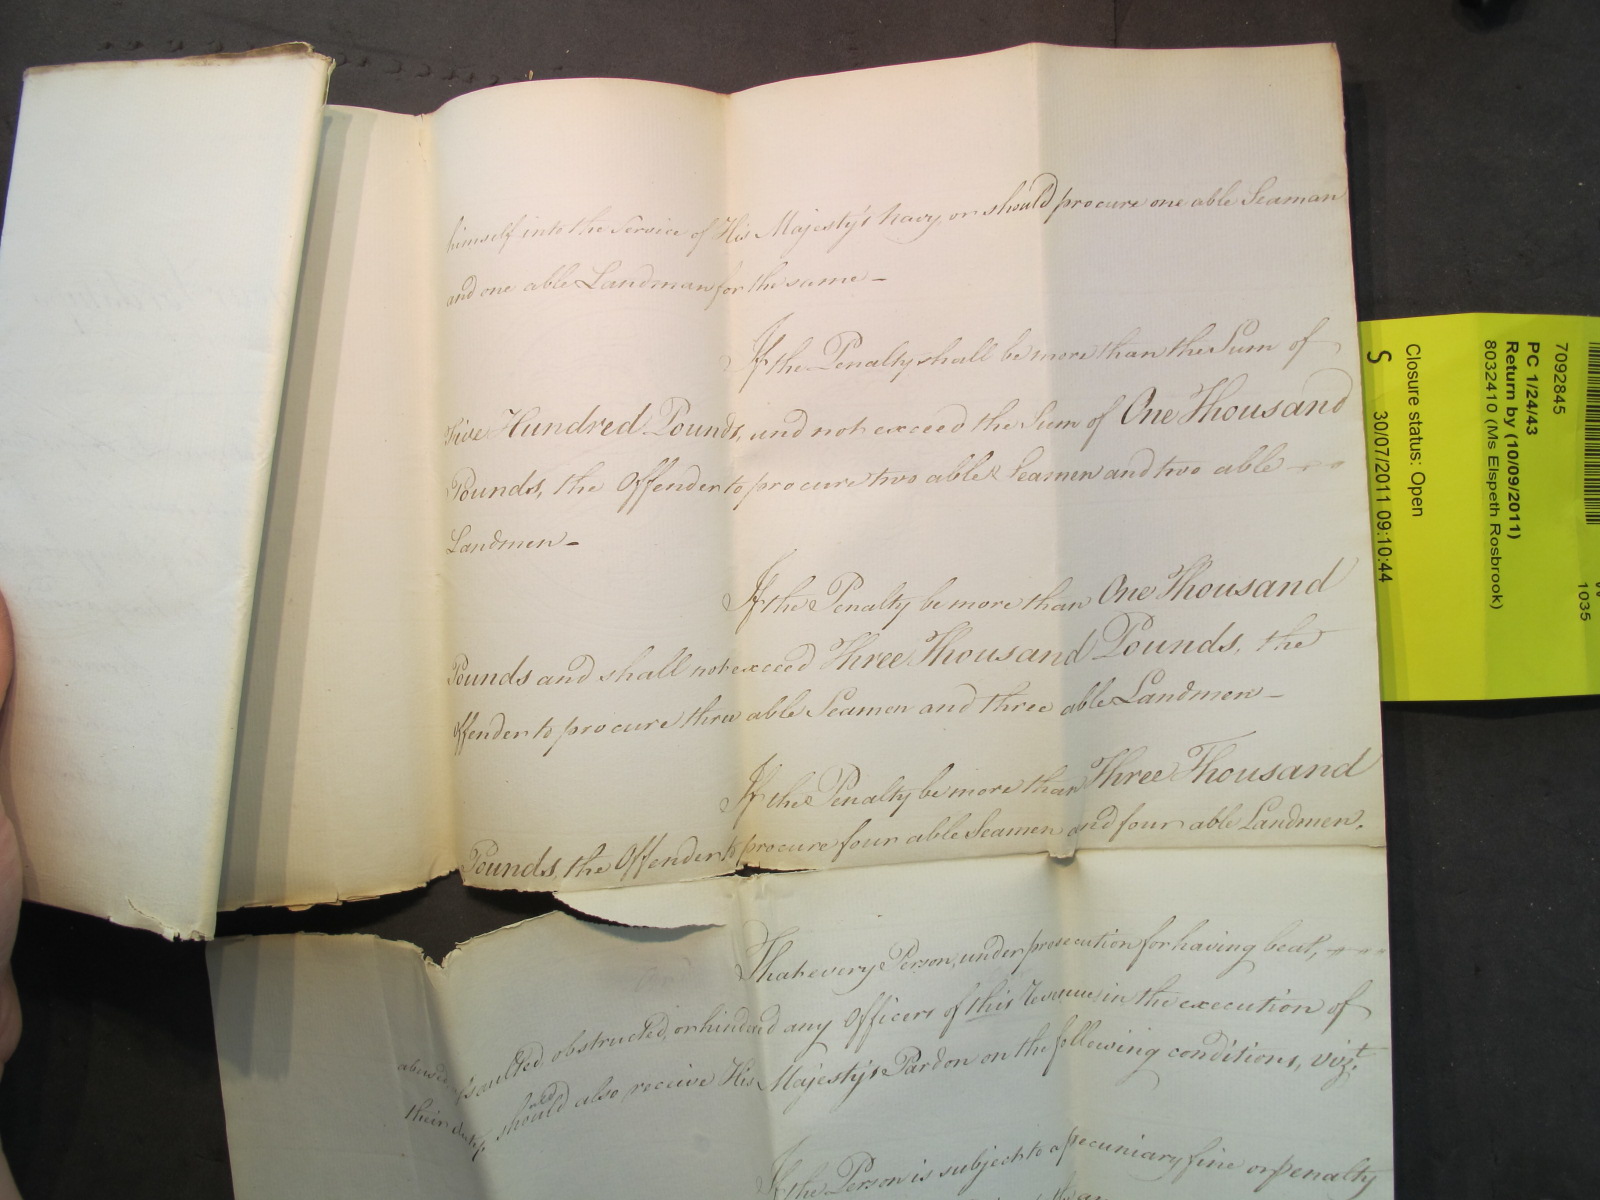 himself into the Service of His Majesty's Navy, or should procure one able Seaman
and one able Landman for the same -
If the Penalty shall be more than the Sum of
Five Hundred Pounds, and not exceed the Sum of One Thousand
Pounds, the Offender to procure two able Seamen and two able
Landmen -
If the Penalty be more than One Thousand
Pounds and shall not exceed Three Thousand Pounds, the
Offender to procure three able Seamen and three able Landmen -
If the Penalty be more than Three Thousand
Pounds, the Offender to procure four able Seamen and four able Landmen.
That every Person, under prosecution for having beat,
abused assaulted obstructed, or hindered any Officers of this Revenue in the execution of
their duty, should also receive His Majesty's Pardon on the following conditions, vizt.
If the Person is subject to a pecuniary fine or penalty
7092845
PC 1/24/43
Return by (10/09/2011)
8032410 (Ms Elspeth Rosbrook)
Closure status: Open
S 30/07/2011 09:10:44
1035